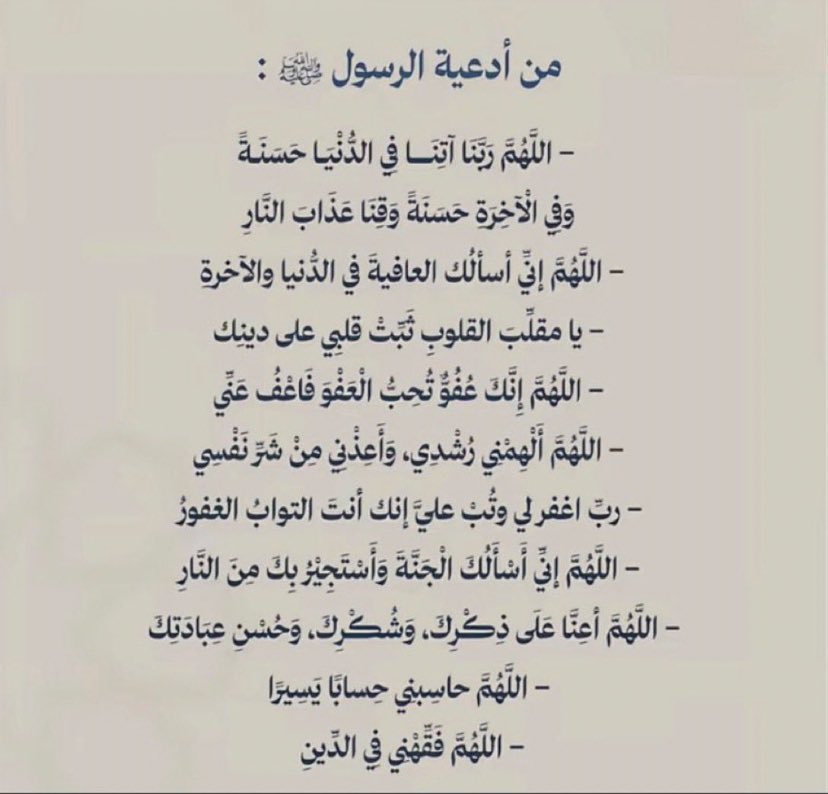 من أدعية الرسول ﷺ :
- اللَّهُمَّ رَبَّنَا آتِنَــا فِي الدُّنْيَـا حَسَنَـةً
وَفِي الْآخِرَةِ حَسَنَةً وَقِنَا عَذَابَ النَّارِ
- اللَّهُمَّ إنِّي أسألُك العافيةَ في الدُّنيا والآخرةِ
- يا مقلِّبَ القلوبِ ثَبِّتْ قلبِي على دينِك
- اللَّهُمَّ إِنَّكَ عُفُوٌّ تُحِبُّ الْعَفْوَ فَاعْفُ عَنِّي
- اللَّهُمَّ أَلْهِمْنِي رُشْدِي، وَأَعِذْنِي مِنْ شَرِّ نَفْسِي
- ربِّ اغفر لي وتُبْ عليَّ إنك أنتَ التوابُ الغفورُ
- اللَّهُمَّ إنِّي أَسْأَلُكَ الْجَنَّةَ وَأَسْتَجِيْرُ بِكَ مِنَ النَّارِ
- اللَّهُمَّ أعِنَّا عَلَى ذِكْرِكَ، وَشُكْرِكَ، وَحُسْنِ عِبَادَتِكَ
- اللَّهُمَّ حاسِبنِي حِسابًا يَسِيرًا
- اللَّهُمَّ فَقِّهْنِي فِي الدِّينِ